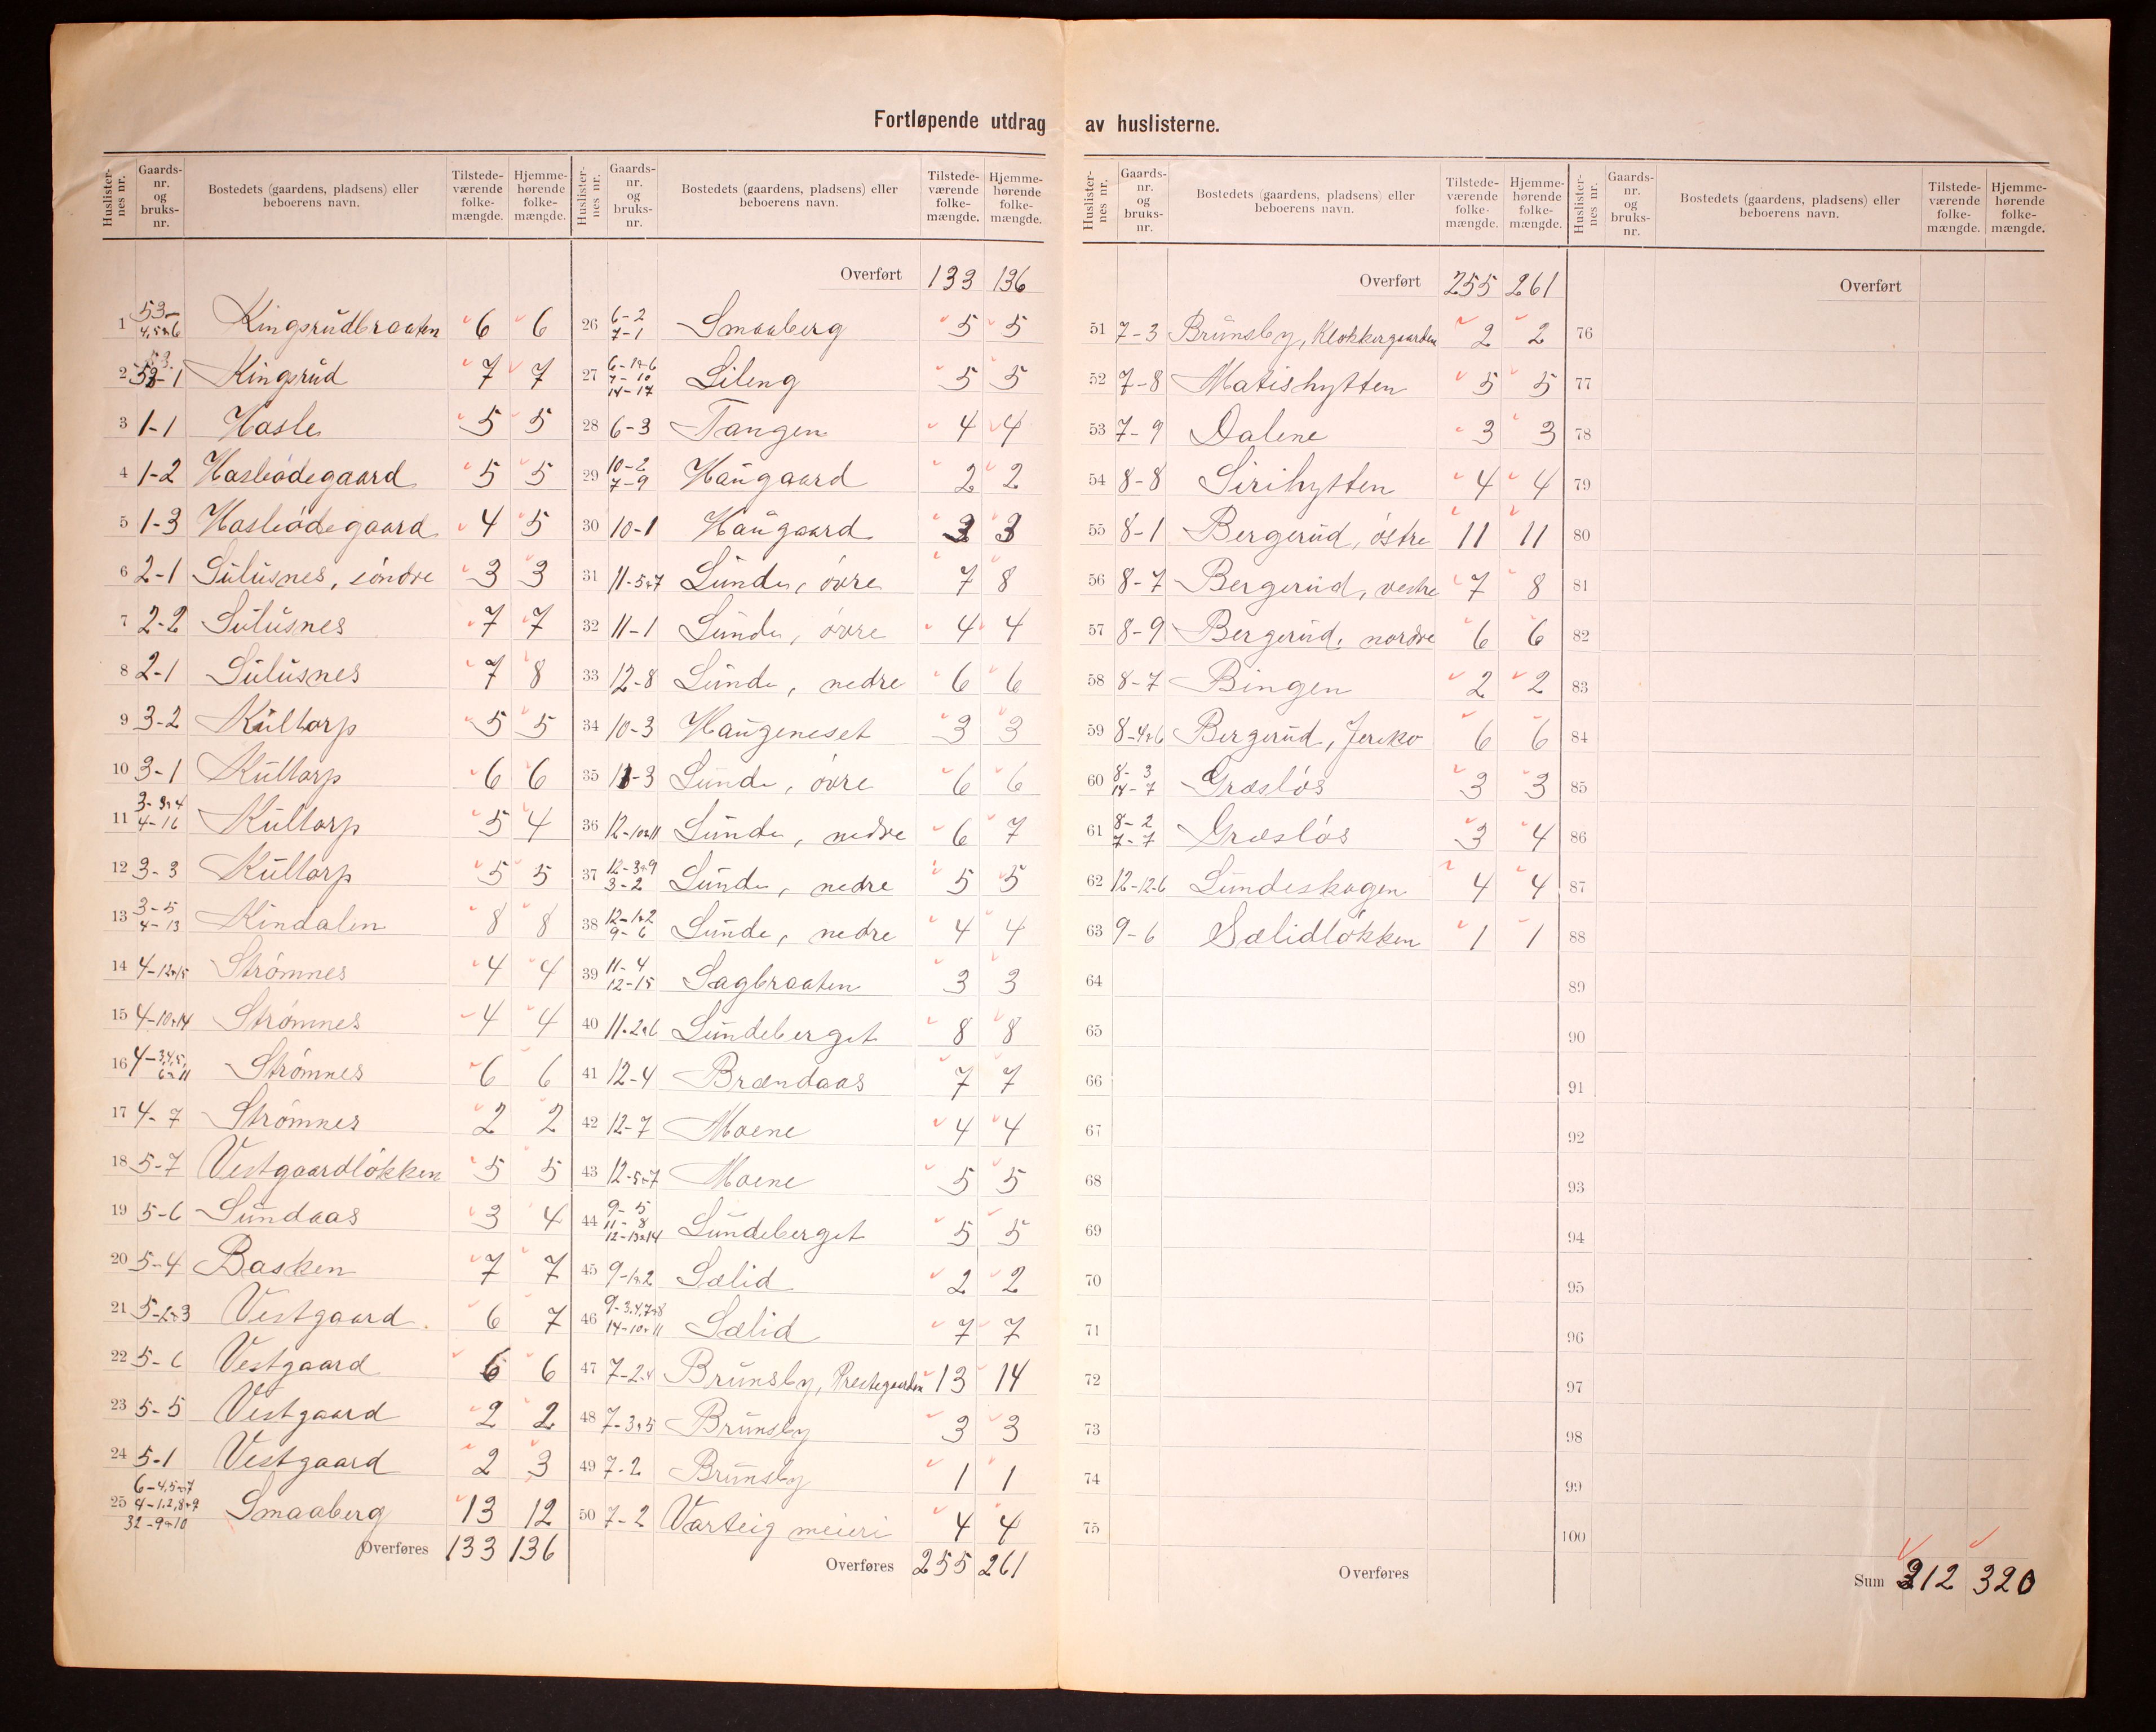 Fortløpende utdrag av huslisterne.
Huslisternes nr. Gaards-nr. og bruks-nr. Bostedets (gaardens, pladsens) eller beboerens navn. Tilstedeværende folkemængde. Hjemmehørende folkemængde.
1 53- 4,5+6 Kingsrudbraaten 6 6
2 53-1 Kingsrud 7 7
3 1-1 Hasle 5 5
4 1-2 Hasleödegaard 5 5
5 1-3 Hasleödegaard 4 5
6 2-1 Sulusnes, söndre 3 3
7 2-2 Sulusnes 7 7
8 2-1 Sulusnes 7 8
9 3-2 Kultorp 5 5
10 3-1 Kultorp 6 6
11 3-3+4 4-16 Kultorp 5 4
12 3-3 Kultorp 5 5
13 3-5 4-13 Kindalen 8 8
14 4-12+15 Strömnes 4 4
15 4-10+14 Strömnes 4 4
16 4-3,4,5, 6+11 Strömnes 6 6
17 4-7 Strömnes 2 2
18 5-7 Vestgaardlökken 5 5
19 5-6 Sundaas 3 4
20 5-4 Basken 7 7
21 5-2+3 Vestgaard. 6 7
22 5-6 Vestgaard 6 6
23 5-5 Vestgaard 2 2
24 5-1 Vestgaard 2 3
25 6-4,5+7 4-1,2,8+9 32-9+10 Smaaberg 13 12
Overføres 133 136
Huslisternes nr. Gaards-nr. og bruks-nr. Bostedets (gaardens, pladsens) eller beboerens navn. Tilstedeværende folkemængde. Hjemmehørende folkemængde.
Overført 133 136
26 6-2 7-1 Smaaberg 5 5
27 6-1+6 7-10 14-17 Lileng 5 5
28 6-3 Tangen 4 4
29 10-2 7-9 Haugaard 2 2
30 10-1 Haugaard 3 3
31 11-5+7 Lunde, övre 7 8
32 11-1 Lunde, övre 4 4
33 12-8 Lunde, nedre 6 6
34 10-3 Haugeneset 3 3
35 11-3 Lunde, övre 6 6
36 12-10+11 Lunde, nedre 6 7
37 12-3+9 3-2 Lunde, nedre 5 5
38 12-1+2 9-6 Lunde, nedre 4 4
39 11-4 12-15 Sagbraaten 3 3
40 11-2+6 Lundeberget 8 8
41 12-4 Brændaas 7 7
42 12-7 Moene 4 4
43 12-5+7 Moene 5 5
44 9-5 11-8 12-13+14 Lundeberget 5 5
45 9-1+2 Sælid 2 2
46 9-3,4,7+8 14-10+11 Sælid 7 7
47 7-2+4 Brunsby, Prestegaarden 13 14
48 7-3+5 Brunsby 3 3
49 7-2 Brunsby 1 1
50 7-2 Varteig meieri 4 4
Overføres 255 261
Huslisternes nr. Gaards-nr. og bruks-nr. Bostedets (gaardens, pladsens) eller beboerens navn. Tilstedeværende folkemængde. Hjemmehørende folkemængde.
Overført 255 261
51 7-3 Brunsby, Klokkergaarden 2 2
52 7-8 Matishytten 5 5
53 7-9 Dalene 3 3
54 8-8 Sirihytten 4 4
55 8-1 Bergerud, östre 11 11
56 8-7 Bergerud, vestre 7 8
57 8-9 Bergerud, nordre 6 6
58 8-7 Bingen 2 2
59 8-4+6 Bergerud, Jeriko 6 6
60 8-3 14-7 Græslös 3 3
61 8-2 7-7 Græslös 3 4
62 12-12-6 Lundeskogen 4 4
63 9-6 Sælidlökken 1 1
64
65
66
67
68
69
70
71
72
73
74
75
Overføres
Huslisternes nr. Gaards-nr. og bruks-nr. Bostedets (gaardens, pladsens) eller beboerens navn. Tilstedeværende folkemængde. Hjemmehørende folkemængde.
Overført
76
77
78
79
80
81
82
83
84
85
86
87
88
89
90
91
92
93
94
95
96
97
98
99
100
Sum 312 320